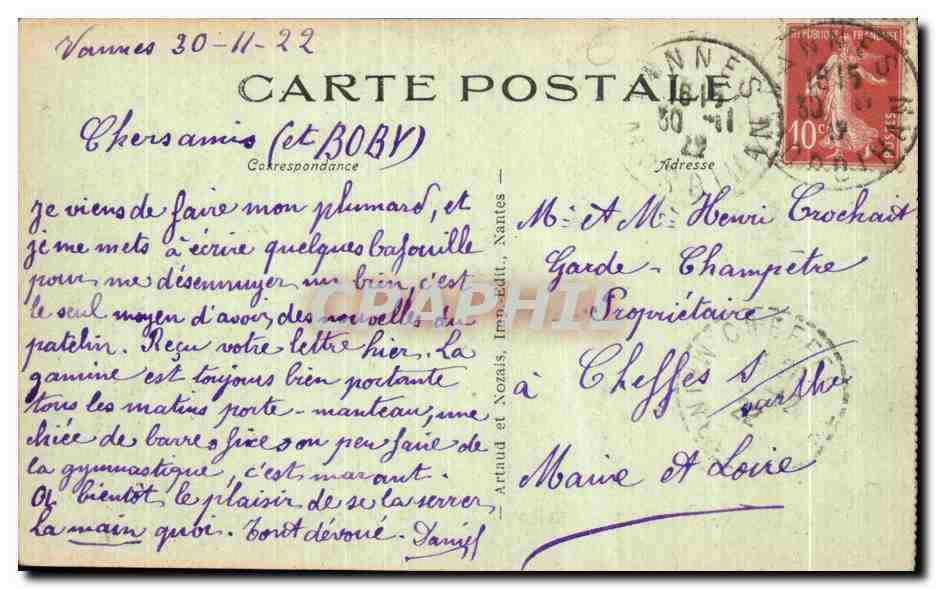 Vannes 30-11-22
CARTE POSTALE
Chers amis (et BOBY)
Correspondance
Je viens de faire mon plumard, et
je me mets à écrire quelques bafouille
pour me désennuyer un brin, c'est
le seul moyen d'avoir des nouvelles du
patelin. Reçu votre lettre hier. La
gamine est toujours bien portante
tous les matins porte-manteau, une
chiée de barre fixe, on peu faire de
la gymnastique, c'est marant.
A bientôt le plaisir de se la serrer
La main quoi. Tout dévoué. Daniel
Artaud et Nozais, Imp.-Edit., Nantes
Adresse
Mr & Me Henri Crochait
Garde-Champêtre
Propriétaire
à Cheffes s/
Sarthe
Maine & Loire
REPUBLIQUE FRANÇAISE
10c
POSTES
VANNES
18 15
30 -11
22
MORBIHAN
VANNES
18 15
30
MORBIHAN
CHEFFES
CPAPHIL